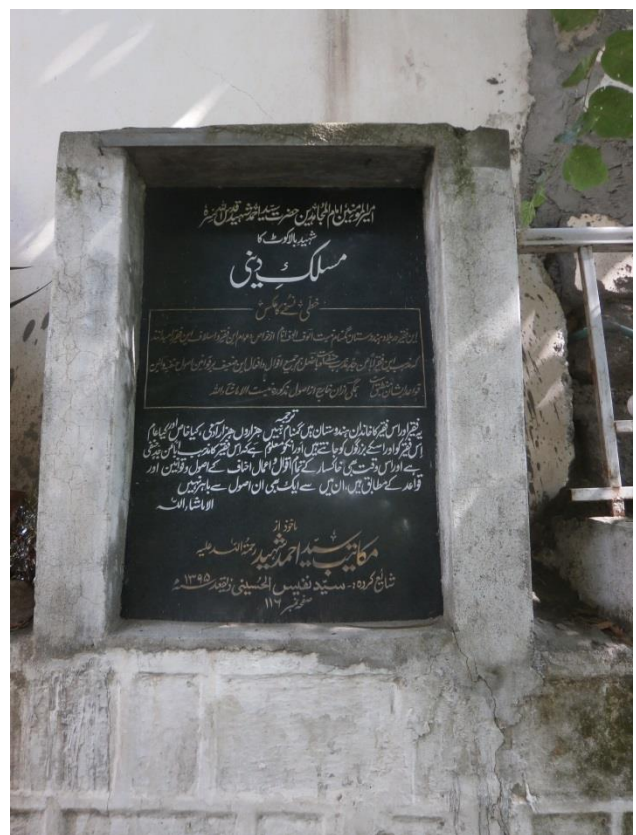 امیرالمومنین امام المجاہدین حضرت سید احمد شہید قدس اللہ سرہ
شہید بالاکوٹ کا
مسلک دینی
خطی نسخے کا عکس
این فقیر
کہ مذہب این فقیر اباً عن جدٍ مذہب حنفی است و بالفعل ہم جمیع اقوال و افعال این ضعیف بر قوانین اصول حنفیہ و آئین
ترجمہ
یہ فقیر اور اس فقیر کا خاندان ہندوستان میں گمنام نہیں ہزاروں ہزار آدمی، کیا خاص اور کیا عام
اس فقیر کو اور اسکے بزرگوں کو جانتے ہیں اور انکو معلوم ہے کہ اس فقیر کا مذہب اباً عن جد حنفی
ہے اور اس وقت بھی خاکسار کے تمام اقوال و اعمال احناف کے اصول و قوانین اور
قواعد کے مطابق ہیں، ان میں سے ایک بھی ان اصول سے باہر نہیں
الا ماشاء اللہ
ماخوذ از
مکاتیب سید احمد شہید رحمۃ اللہ علیہ
شائع کردہ :۔ سید نفیس الحسینی ذیقعد سنہ ۱۳۹۵ھ
صفحہ نمبر ۱۱۶